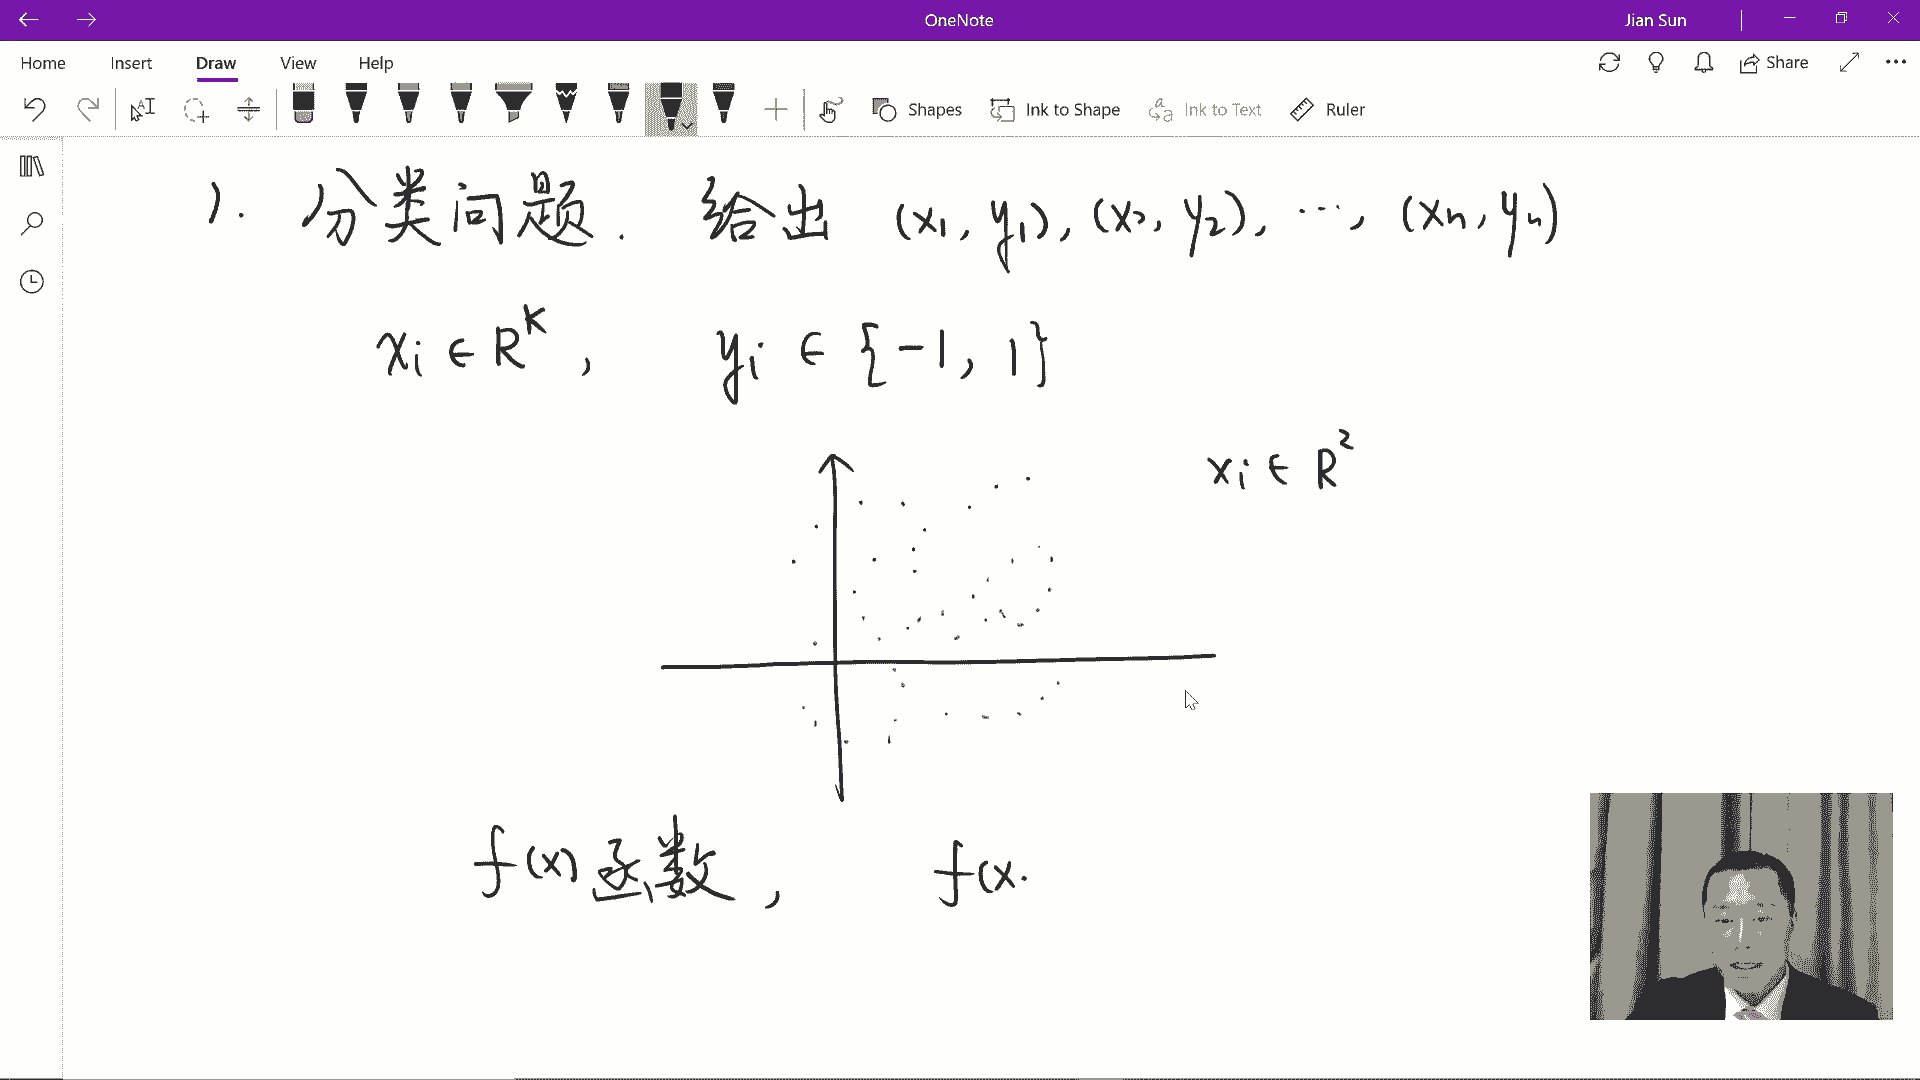 OneNote
Jian Sun
Home Insert Draw View Help
Share
Shapes Ink to Shape Ink to Text Ruler
1. 分类问题. 给出 (x₁, y₁), (x₂, y₂), ⋯, (xₙ, yₙ)
xᵢ ∈ Rᴷ, yᵢ ∈ {-1, 1}
xᵢ ∈ R²
f(x) 函数, f(x.